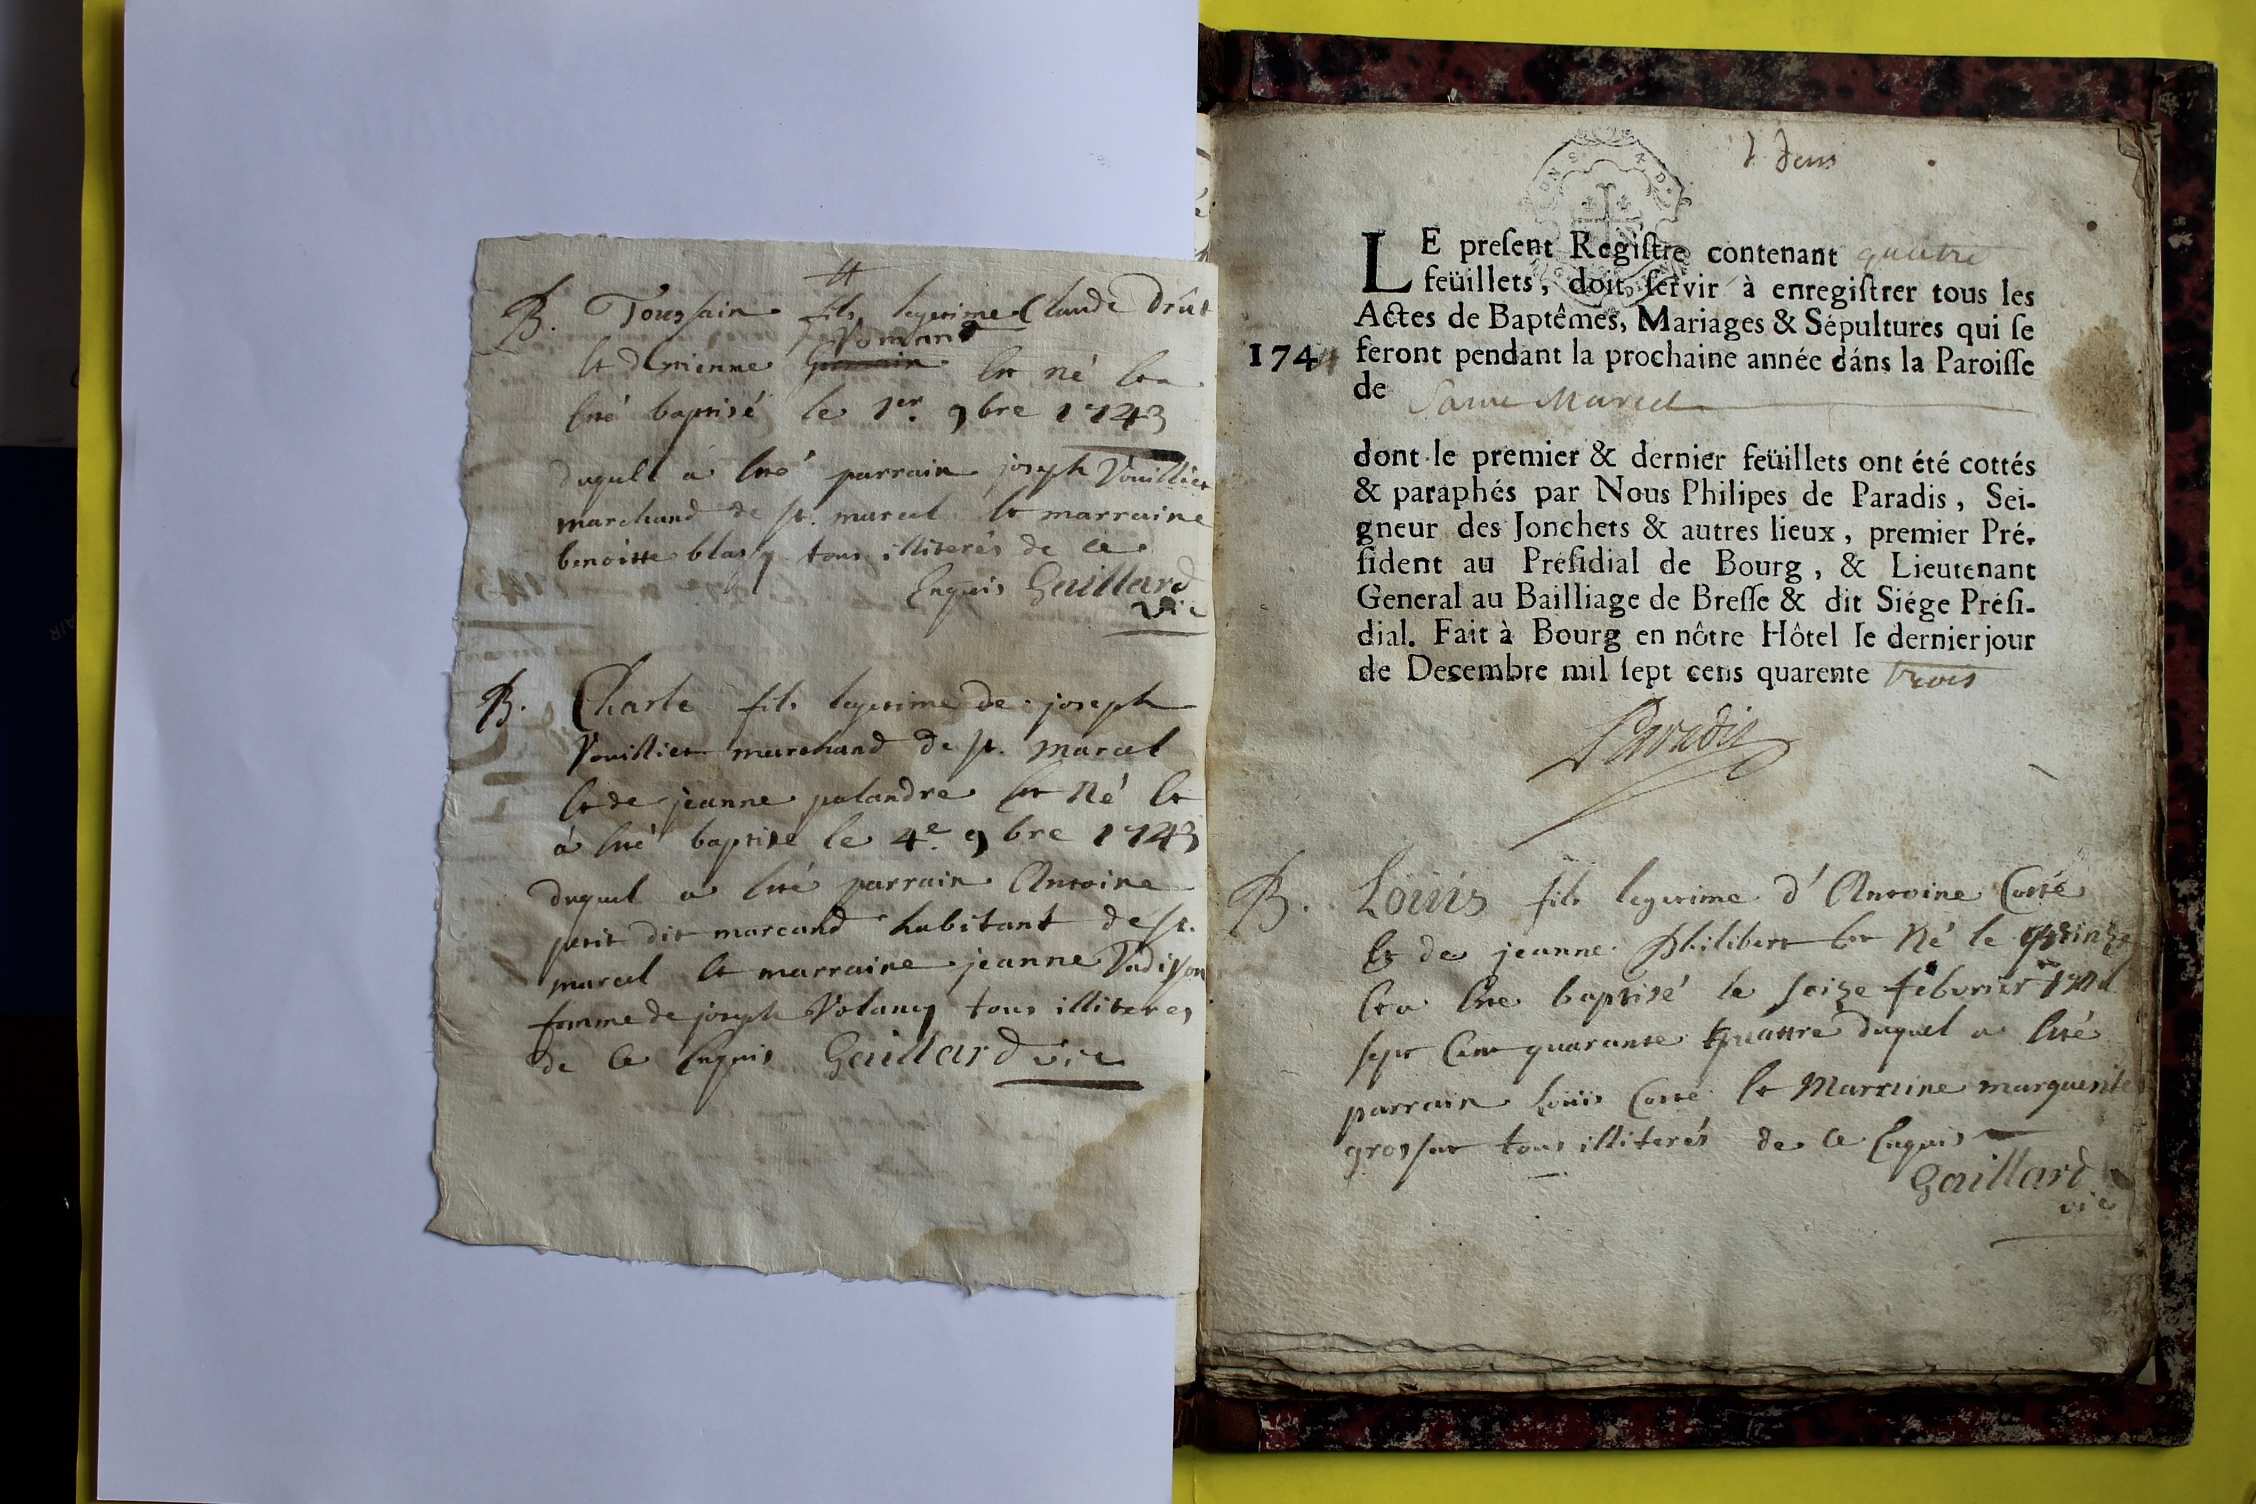 B. Toussain fils legitime Claude Drut
et demienne Romans Est né et a
été baptisé le 1er. 9bre 1743
duquel a été parrain joseph Vouillier
marchand de st. marcel et marraine
benoitte blasy tous illiterés de ce
Enquis Gaillard
vic
B. Charle fils legitime de joseph
Vouillier marchand de st. marcel
et de jeanne palandre Est Né et
á été baptisé le 4e. 9bre 1743
duquel a été parrain Antoine
petit dit marcand habitant de st.
marcel et marraine jeanne
femme de joseph Volancy tous illiteres
de ce Enquis Gaillard vic
2 deus
LE preſent Regiſtre contenant quatre
feüillets, doit ſervir à enregiſtrer tous les
Actes de Baptêmes, Mariages & Sépultures qui ſe
1744 feront pendant la prochaine année dáns la Paroiſſe
de Saint Marcel
dont le premier & dernier feüillets ont été cottés
& paraphés par Nous Philipes de Paradis, Sei-
gneur des Jonchets & autres lieux, premier Pré-
ſident au Préſidial de Bourg, & Lieutenant
General au Bailliage de Breſſe & dit Siége Préſi-
dial. Fait à Bourg en nôtre Hôtel le dernier jour
de Decembre mil ſept cens quarente trois
Paradis
B. Louis fils legitime d'Antoine Cotté
Et de jeanne philibert Est Né le quinze
et a été baptisé le seize febvrier
sept Cent quarante quattre duquel a été
parrain Louis Cotté et Marraine marguerite
grosset tous illiterés de ce Enquis
Gaillard
vic